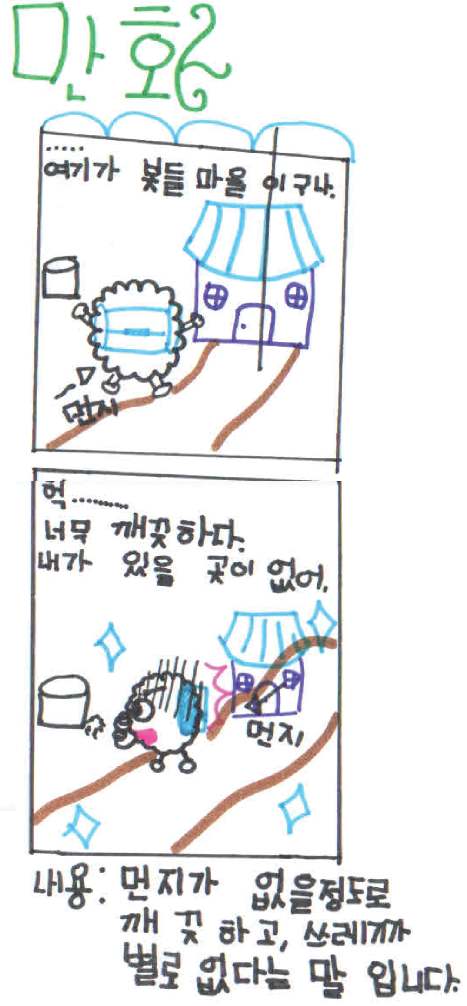 만화
.....
여기가 봇들 마을 이구나.
먼지
헉..........
너무 깨끗하다.
내가 있을 곳이 없어.
먼지
내용: 먼지가 없을정도로
깨 끗 하 고, 쓰레기가
별로 없다는 말 입니다.